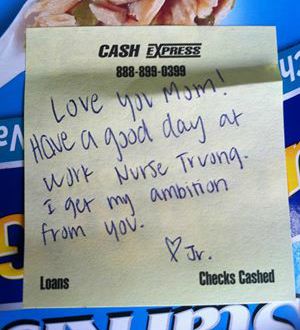 CASH EXPRESS
888-899-0399
Love you Mom!
Have a good day at
work Nurse Truong.
I get my ambition
from you.
♡ Jr.
Loans Checks Cashed